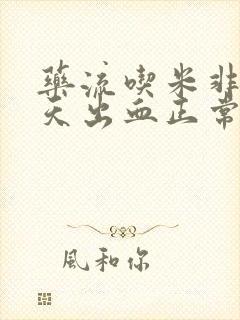 藥流喫米非
天出血正常
風和你